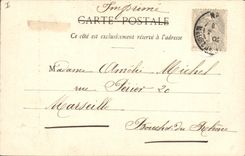 Imprimé
CARTE POSTALE
Ce côté est exclusivement réservé à l'adresse
Madame Amélie Michel
rue Périer 20
Marseille
Bouches du Rhône